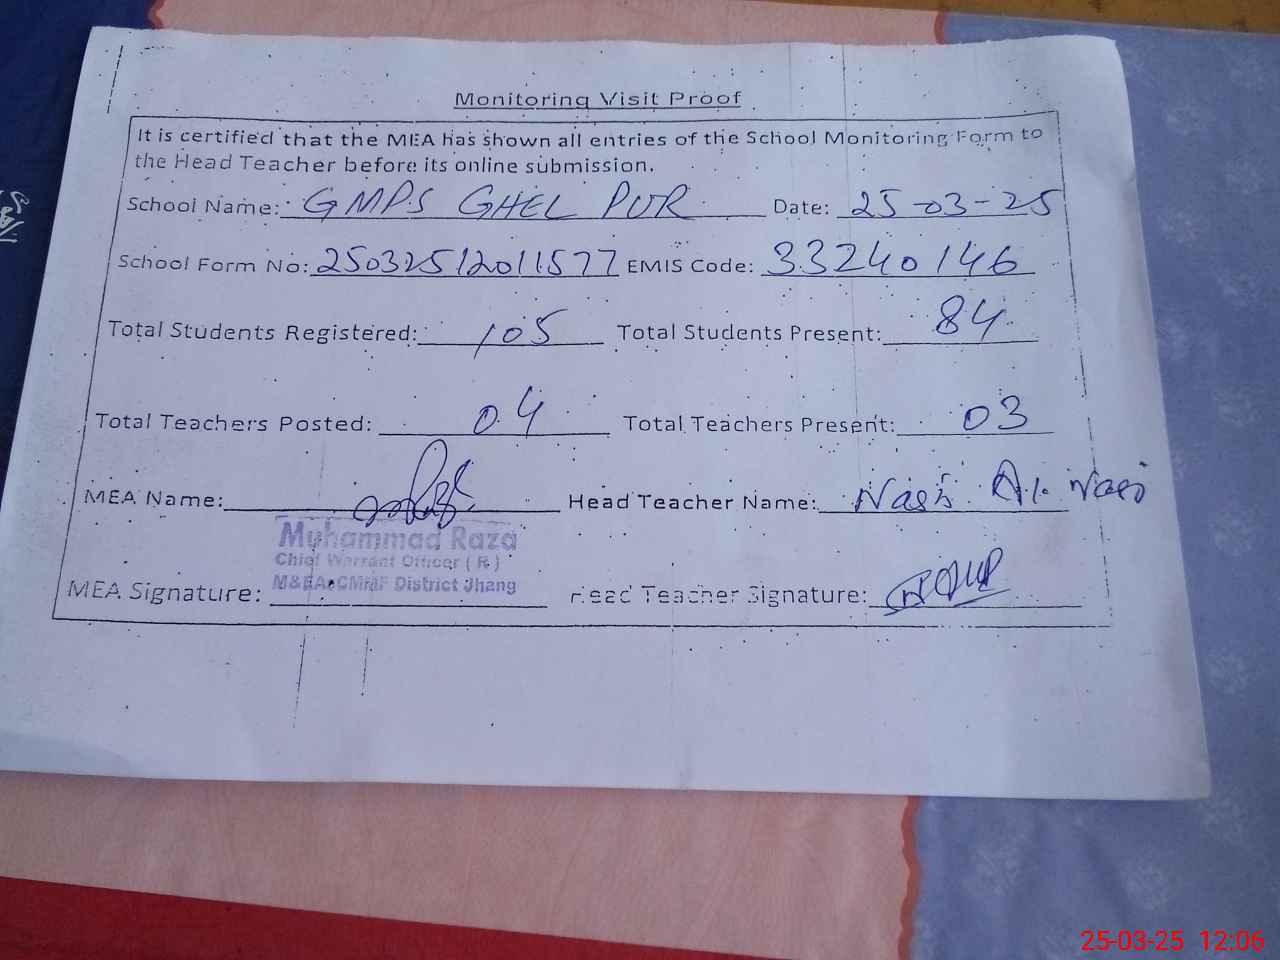 Monitoring Visit Proof
It is certified that the MEA has shown all entries of the School Monitoring Form to
the Head Teacher before its online submission.
School Name: GMPS GHEL PUR Date: 25-03-25
School Form No: 25032512011577 EMIS Code: 33240146
Total Students Registered: 105 Total Students Present: 84
Total Teachers Posted: 04 Total Teachers Present: 03
MEA Name: Head Teacher Name:
Muhammad Raza
Chief Warrant Officer ( R )
M&EA CMIF District Jhang
MEA Signature: Head Teacher Signature:
25-03-25 12:06